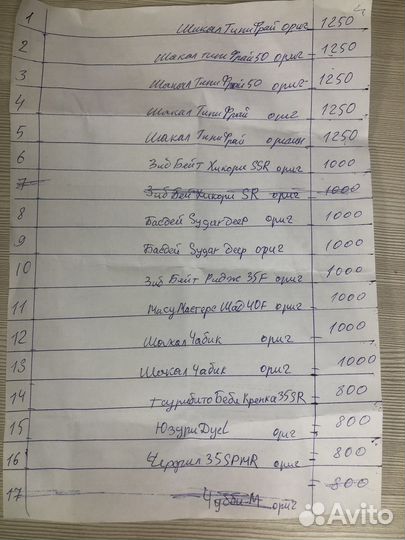 4
1 Шакал Тини Фрай ориг 1250
2 Шакал тини Фрай50 ориг - 1250
3 Шакал Тини Фрай 50 ориг - 1250
4 Шакал Тини Фрай ориг - 1250
5 Шакал Тини Фрай оригин 1250
6 Зиб Бейт Хикори SSR ориг 1000
7 Зиб Бей Хикори SR ориг 1000
8 Басдей Sugar Deep ориг 1000
9 Басдей Sugar Deep ориг - 1000
10 Зиб Бейт Ридж 35F ориг - 1000
11 Масу Мастерс Шад 40F ориг - 1000
12 Шакал Чабик ориг - 1000
13 Шакал Чабик ориг = 1000
14 Тсурибито Беби Кренка 35SR - 800
15 Юзури Дуеl ориг - 800
16 35SPMR ориг - 800
17 Чубби-М ориг - 800
Avito